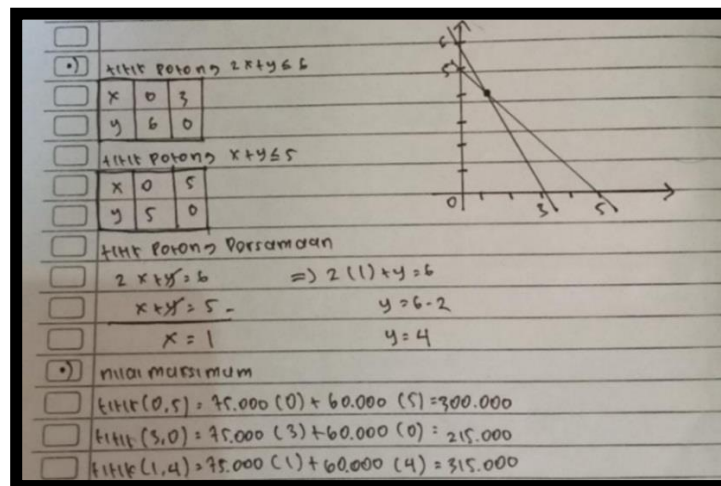 •) titik potong 2x+y≤6
x 0 3
y 6 0
titik potong x+y≤5
x 0 5
y 5 0
titik potong persamaan
2x+y=6 => 2(1)+y=6
x+y=5 - y=6-2
x=1 y=4
•) nilai maksimum
titik (0,5) = 75.000 (0) + 60.000 (5) = 300.000
titik (3,0) = 75.000 (3) + 60.000 (0) = 215.000
titik (1,4) = 75.000 (1) + 60.000 (4) = 315.000
6
5
0 3 5